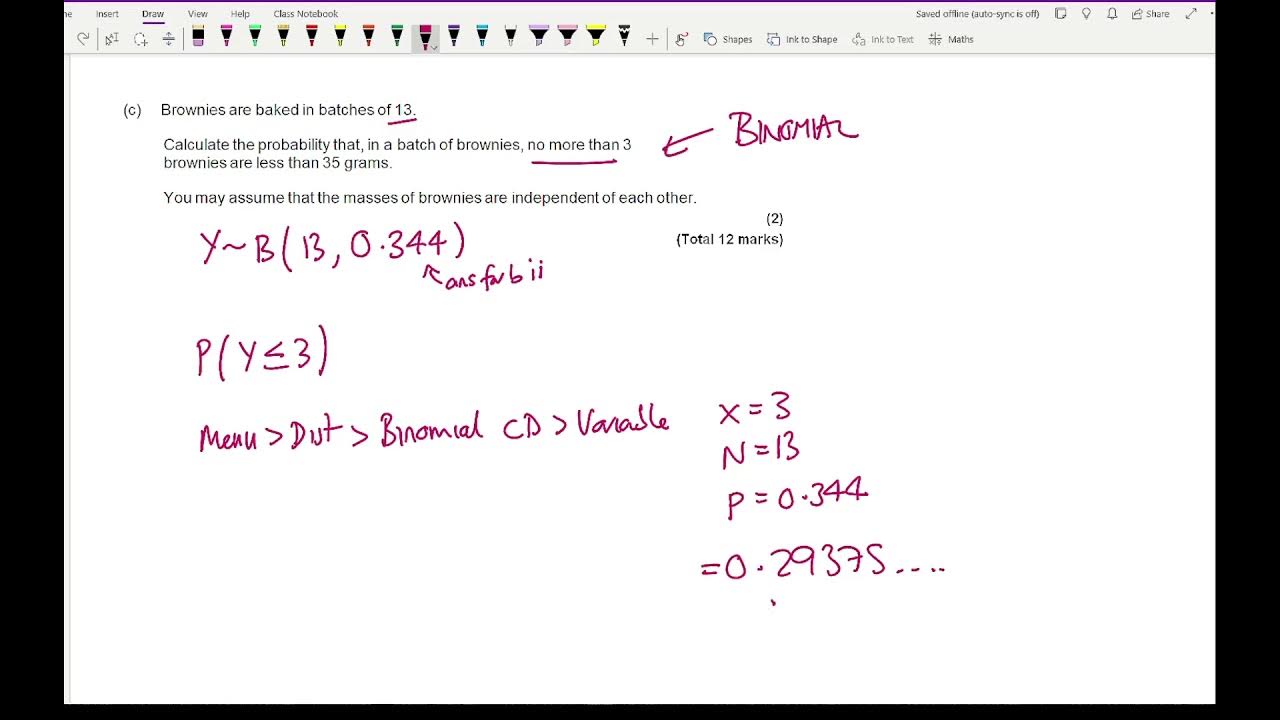 me Insert Draw View Help Class Notebook Saved offline (auto-sync is off) Share
Shapes Ink to Shape Ink to Text Maths
(c) Brownies are baked in batches of 13.
Calculate the probability that, in a batch of brownies, no more than 3
brownies are less than 35 grams.
BINOMIAL
You may assume that the masses of brownies are independent of each other.
(2)
(Total 12 marks)
Y~B(13, 0.344)
ans for b ii
P(Y≤3)
Menu > Dist > Binomial CD > Variable
x = 3
N = 13
P = 0.344
= 0.29375....